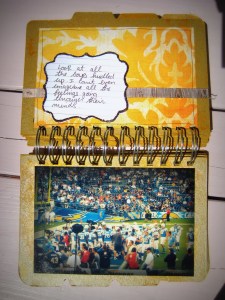 Look at all
the boys huddled
up. I can't even
imagine all the
feelings going
through their
minds.